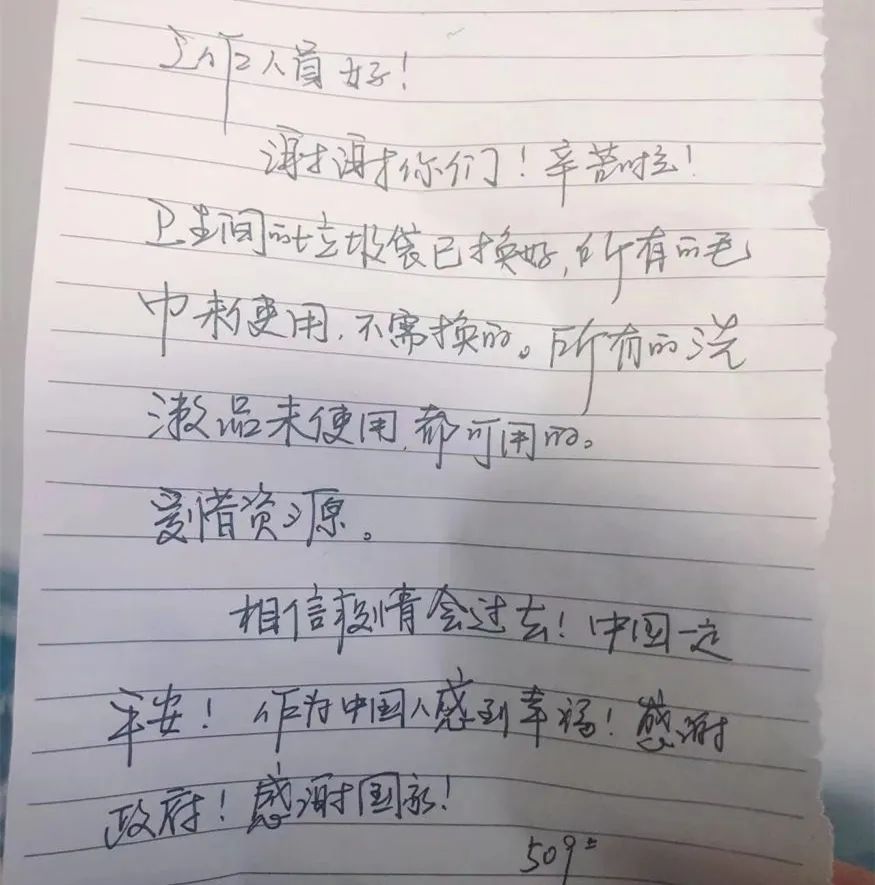 工作人员好!
谢谢你们!辛苦啦!
卫生间的垃圾袋已换好,所有的毛
巾未使用,不需换的。所有的洗
漱品未使用,都可用的。
爱惜资源。
相信疫情会过去!中国一定
平安!作为中国人感到幸福!感谢
政府!感谢国家!
509